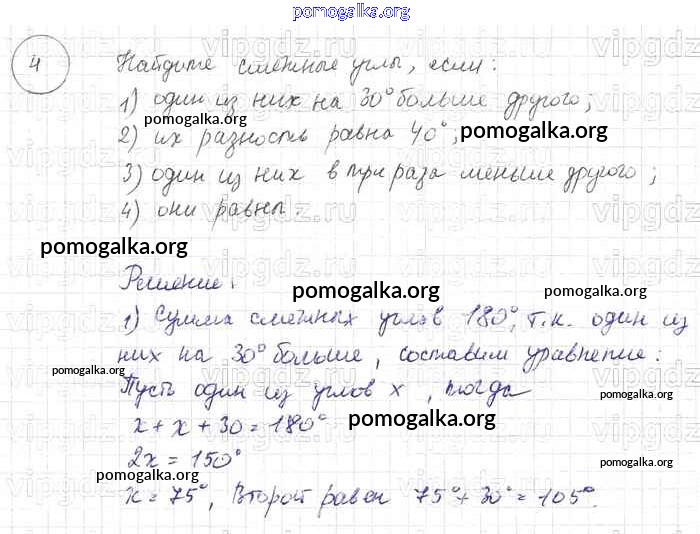 pomogalka.org
4 Найдите смежные углы, если:
1) один из них на 30° больше другого;
pomogalka.org
2) их разность равна 40°;
pomogalka.org
3) один из них в три раза меньше другого;
4) они равны.
pomogalka.org
pomogalka.org
Решение:
pomogalka.org
1) Сумма смежных углов 180°, т.к. один из
них на 30° больше, составим уравнение:
pomogalka.org
Пусть один из углов x, тогда
pomogalka.org
x + x + 30 = 180°
pomogalka.org
2x = 150°
pomogalka.org
pomogalka.org
x = 75°, Второй равен 75° + 30° = 105°.
vipgdz.ru